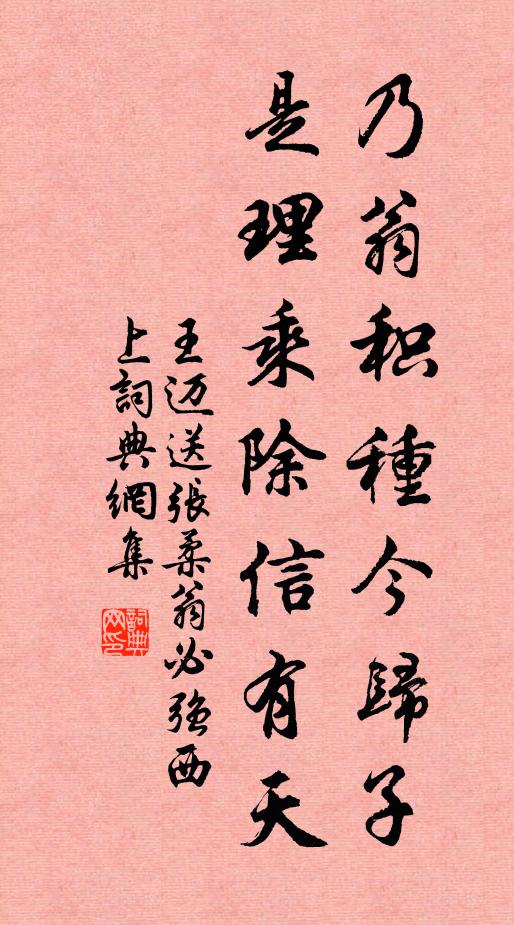 乃翁积種今歸子
是理乘除信有天
王迈送張柔翁必强西
上詞典網集
詞典网印